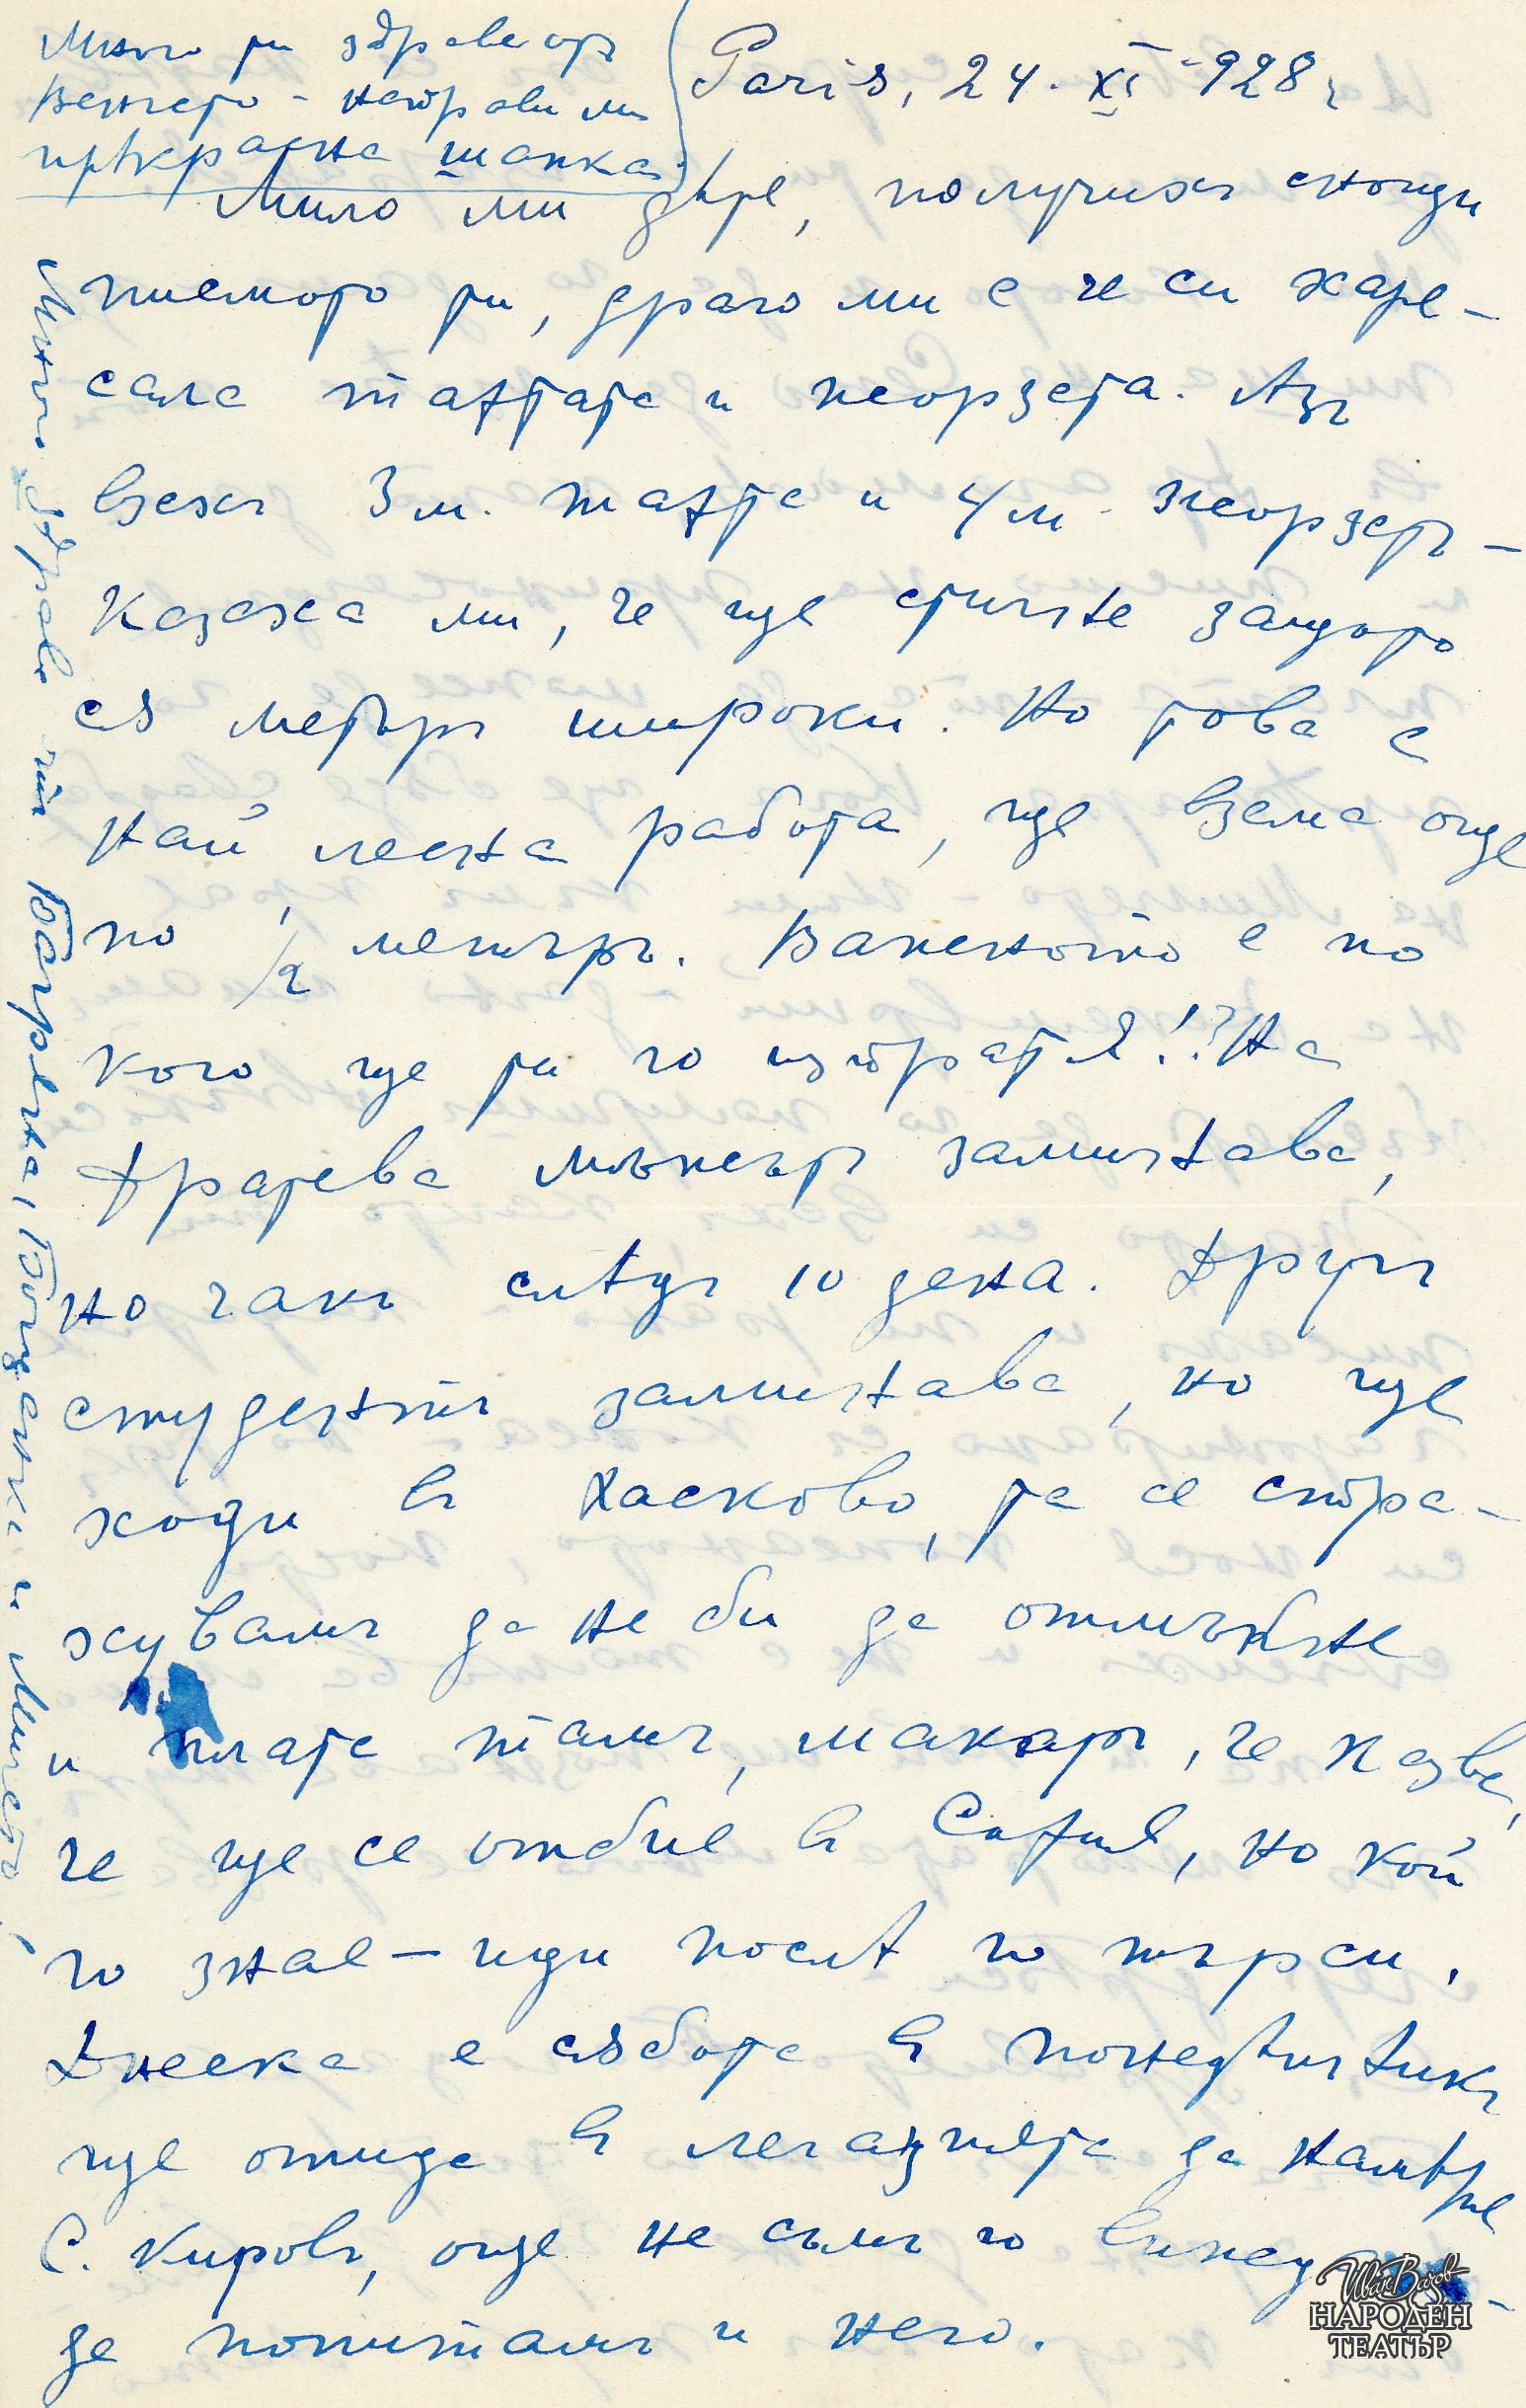 Много ти здраве отъ
Венчето - направи ми
прѣкрасна шапка.
Paris, 24. XI 928 г
Мило ми дѣте, получихъ снощи
писмото ти, драго ми е че си харе-
сала тафтата и жоржета. Азъ
взехъ 3 м. тафта и 4 м. жоржетъ -
казаха ми, че ще стигне защото
сѫ метъръ широки. Но това е
най лесна работа, ще взема още
по 1/2 метъръ. Важното е по
кого ще ти го изпратя!? На
Дратева мъжътъ заминава,
но чакъ слѣдъ 10 дена. Другъ
студентъ заминава, но ще
ходи въ Хасково, та се стра-
хувамъ да не би да отмъкне
и плата тамъ, макаръ, че казва,
че ще се отбие въ София, но кой
го знае — иди послѣ го търси.
Днеска е сѫбота въ понедѣлникъ
ще отида въ легацията да намѣря
С. Кировъ, още не съмъ го
да попитамъ и него.
Много здраве на Багряна, Богданка и Минчето!
Иван Вазов
НАРОДЕН
ТЕАТЪР